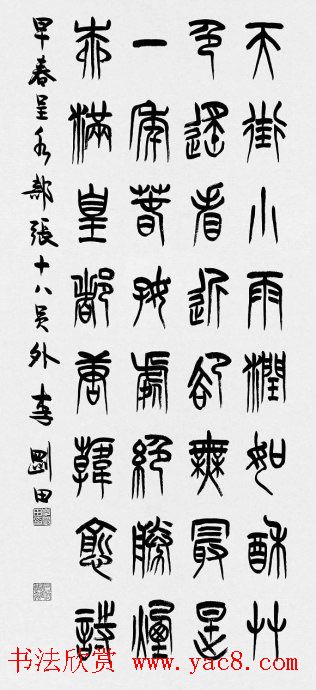 天街小雨潤如酥艸
色遙看近卻無最是
一年春好處絕勝煙
柳滿皇都唐韓愈詩
早春呈水部張十八員外李剛田
书法欣赏 www.yac8.com